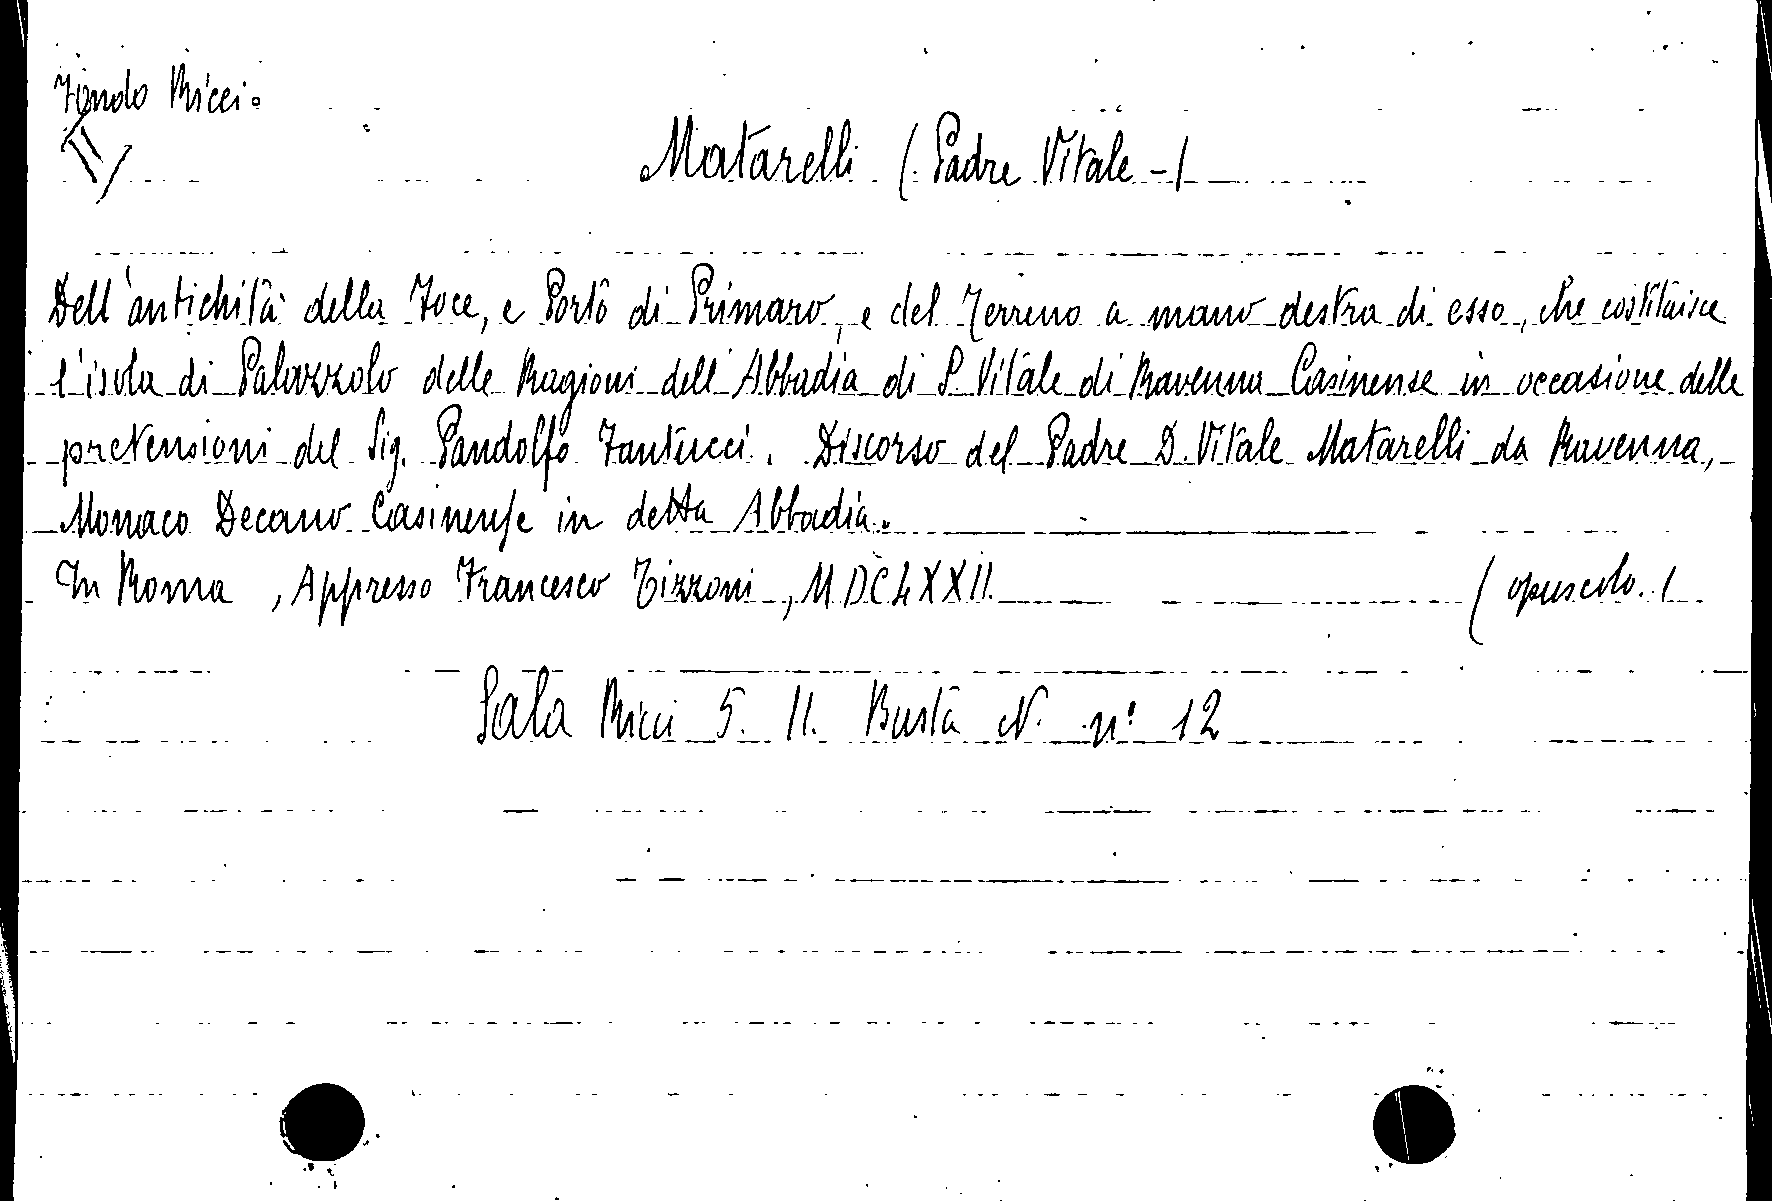 Fondo Ricci.
Matarelli ( Padre Vitale - )
Dell'antichità della Foce, e Porto di Primaro, e del Terreno a mano destra di esso, che costituisce
l'isola di Palazzolo delle Ragioni dell'Abbadia di S. Vitale di Ravenna Casinense in occasione delle
pretensioni del Sig. Pandolfo Fantucci. Discorso del Padre D. Vitale Matarelli da Ravenna,
Monaco Decano Casinense in detta Abbadia.
In Roma , Appresso Francesco Tizzoni , MDCLXXII. ( opuscolo. )
Sala Ricci 5. II. Busta N. n° 12